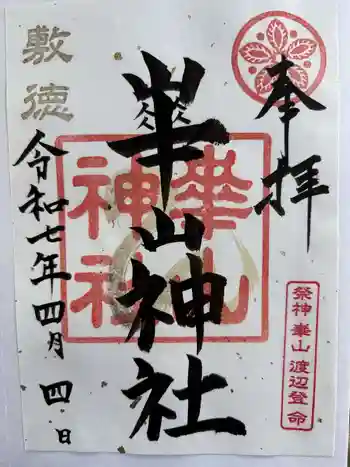 奉拝
崋山神社
崋山
神社
祭神 崋山 渡辺登 命
敷徳
令和七年四月四日